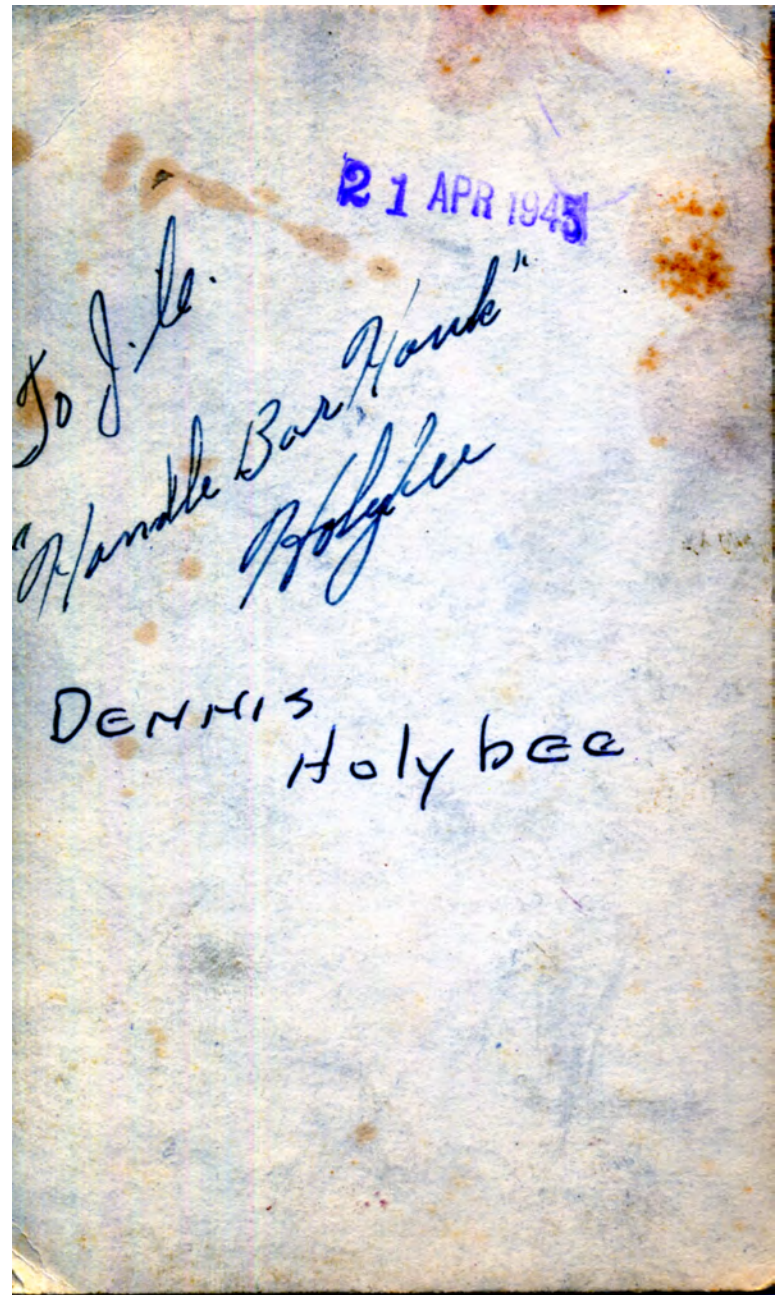 21 APR 1945
To J.C.
"Handle Bar Hank"
Holybee
DENNIS
Holybee